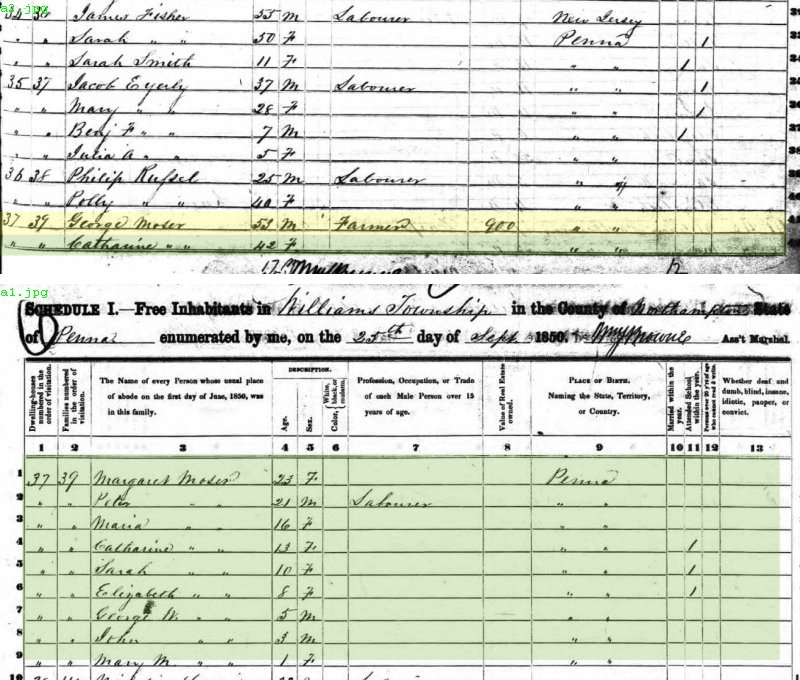 a2.jpg
34 36 James Fisher 55 M Labourer New Jersey
" " Sarah " " 50 F Penna 1
" " Sarah Smith 11 F " " 1
35 37 Jacob Eyerly 37 M Labourer " " 1
" " Mary " " 28 F " " 1
" " Benj F " " 7 M " " 1
" " Julia A " " 5 F " "
36 38 Philip Russel 25 M Labourer " "
" " Polly " " 40 F " "
37 39 George Moser 53 M Farmer 900 " "
" " Catharine " " 42 F " "
a1.jpg
SCHEDULE I.—Free Inhabitants in Williams Township in the County of Northampton State
of Penna enumerated by me, on the 25th day of Sept 1850. Ass't Marshal.
DESCRIPTION.
Dwelling-houses numbered in the order of visitation. Families numbered in the order of visitation. The Name of every Person whose usual place of abode on the first day of June, 1850, was in this family. Age. Sex. Color, White, black, or mulatto. Profession, Occupation, or Trade of each Male Person over 15 years of age. Value of Real Estate owned. PLACE OF BIRTH. Naming the State, Territory, or Country. Married within the year. Attended School within the year. Persons over 20 y'rs of age who cannot read & write. Whether deaf and dumb, blind, insane, idiotic, pauper, or convict.
1 2 3 4 5 6 7 8 9 10 11 12 13
1 37 39 Margaret Moser 23 F Penna
2 " " Peter " " 21 M Labourer " "
3 " " Maria " " 16 F " "
4 " " Catharine " " 13 F " " 1
5 " " Sarah " " 10 F " " 1
6 " " Elizabeth " " 8 F " " 1
7 " " George W. " " 5 M " "
8 " " John " " 3 M " "
9 " " Mary M. " " 1 F " "
10